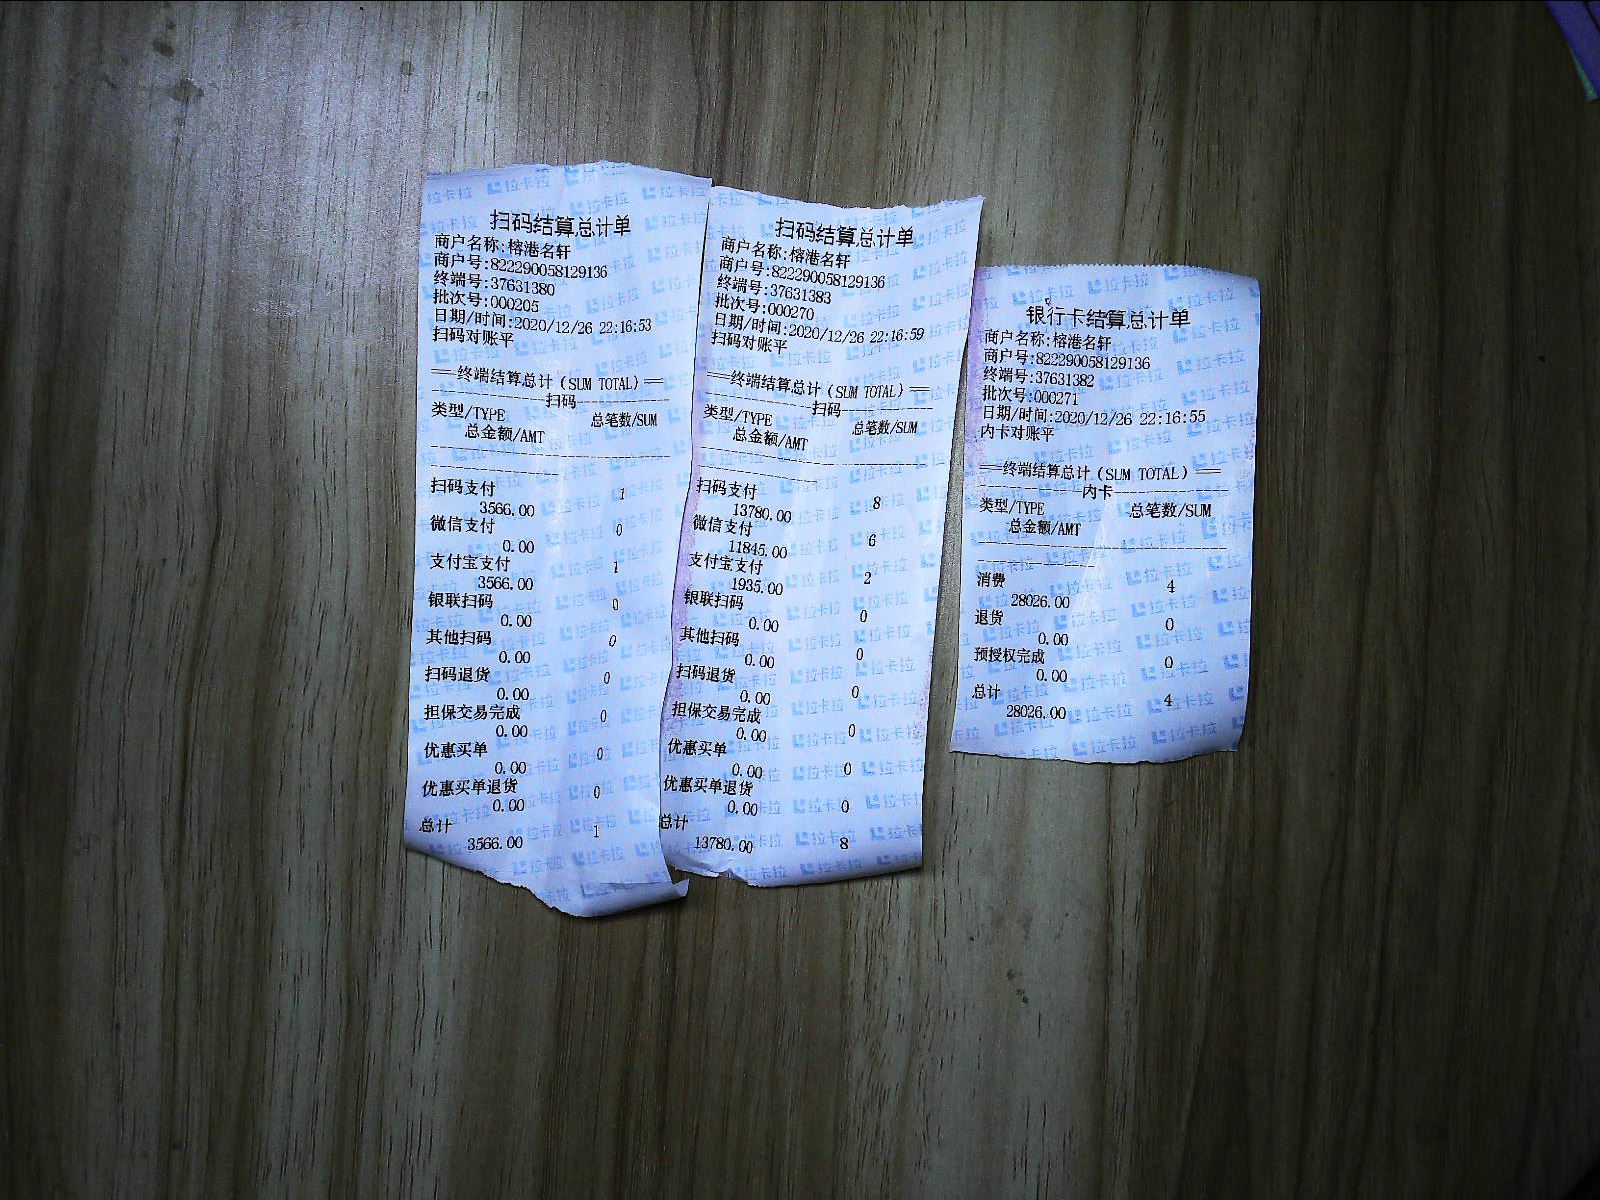 扫码结算总计单
商户名称:榕港名轩
商户号:822290058129136
终端号:37631380
批次号:000205
日期/时间:2020/12/26 22:16:53
扫码对账平
==终端结算总计(SUM TOTAL)==
扫码
类型/TYPE 总笔数/SUM
总金额/AMT
扫码支付 1
3566.00
微信支付 0
0.00
支付宝支付 1
3566.00
银联扫码 0
0.00
其他扫码 0
0.00
扫码退货 0
0.00
担保交易完成 0
0.00
优惠买单 0
0.00
优惠买单退货 0
0.00
总计 1
3566.00
扫码结算总计单
商户名称:榕港名轩
商户号:822290058129136
终端号:37631383
批次号:000270
日期/时间:2020/12/26 22:16:59
扫码对账平
==终端结算总计(SUM TOTAL)==
扫码
类型/TYPE 总笔数/SUM
总金额/AMT
扫码支付 8
13780.00
微信支付 6
11845.00
支付宝支付 2
1935.00
银联扫码 0
0.00
其他扫码 0
0.00
扫码退货 0
0.00
担保交易完成 0
0.00
优惠买单 0
0.00
优惠买单退货 0
0.00
总计 8
13780.00
银行卡结算总计单
商户名称:榕港名轩
商户号:822290058129136
终端号:37631382
批次号:000271
日期/时间:2020/12/26 22:16:55
内卡对账平
==终端结算总计(SUM TOTAL)==
内卡
类型/TYPE 总笔数/SUM
总金额/AMT
消费 4
28026.00
退货 0
0.00
预授权完成 0
0.00
总计 4
28026.00
拉卡拉